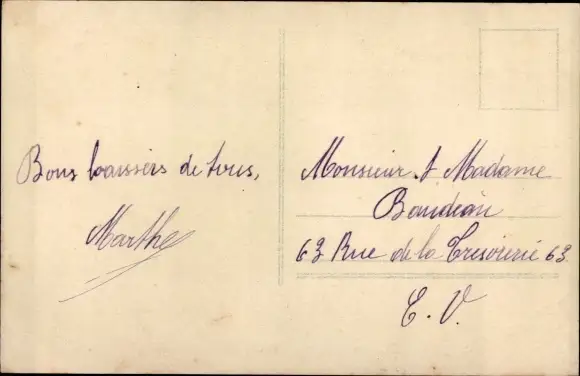 Bons baisers de tous,
Marthe
Monsieur & Madame
Baudean
63 Rue de la Tresorerie 63
E. V.